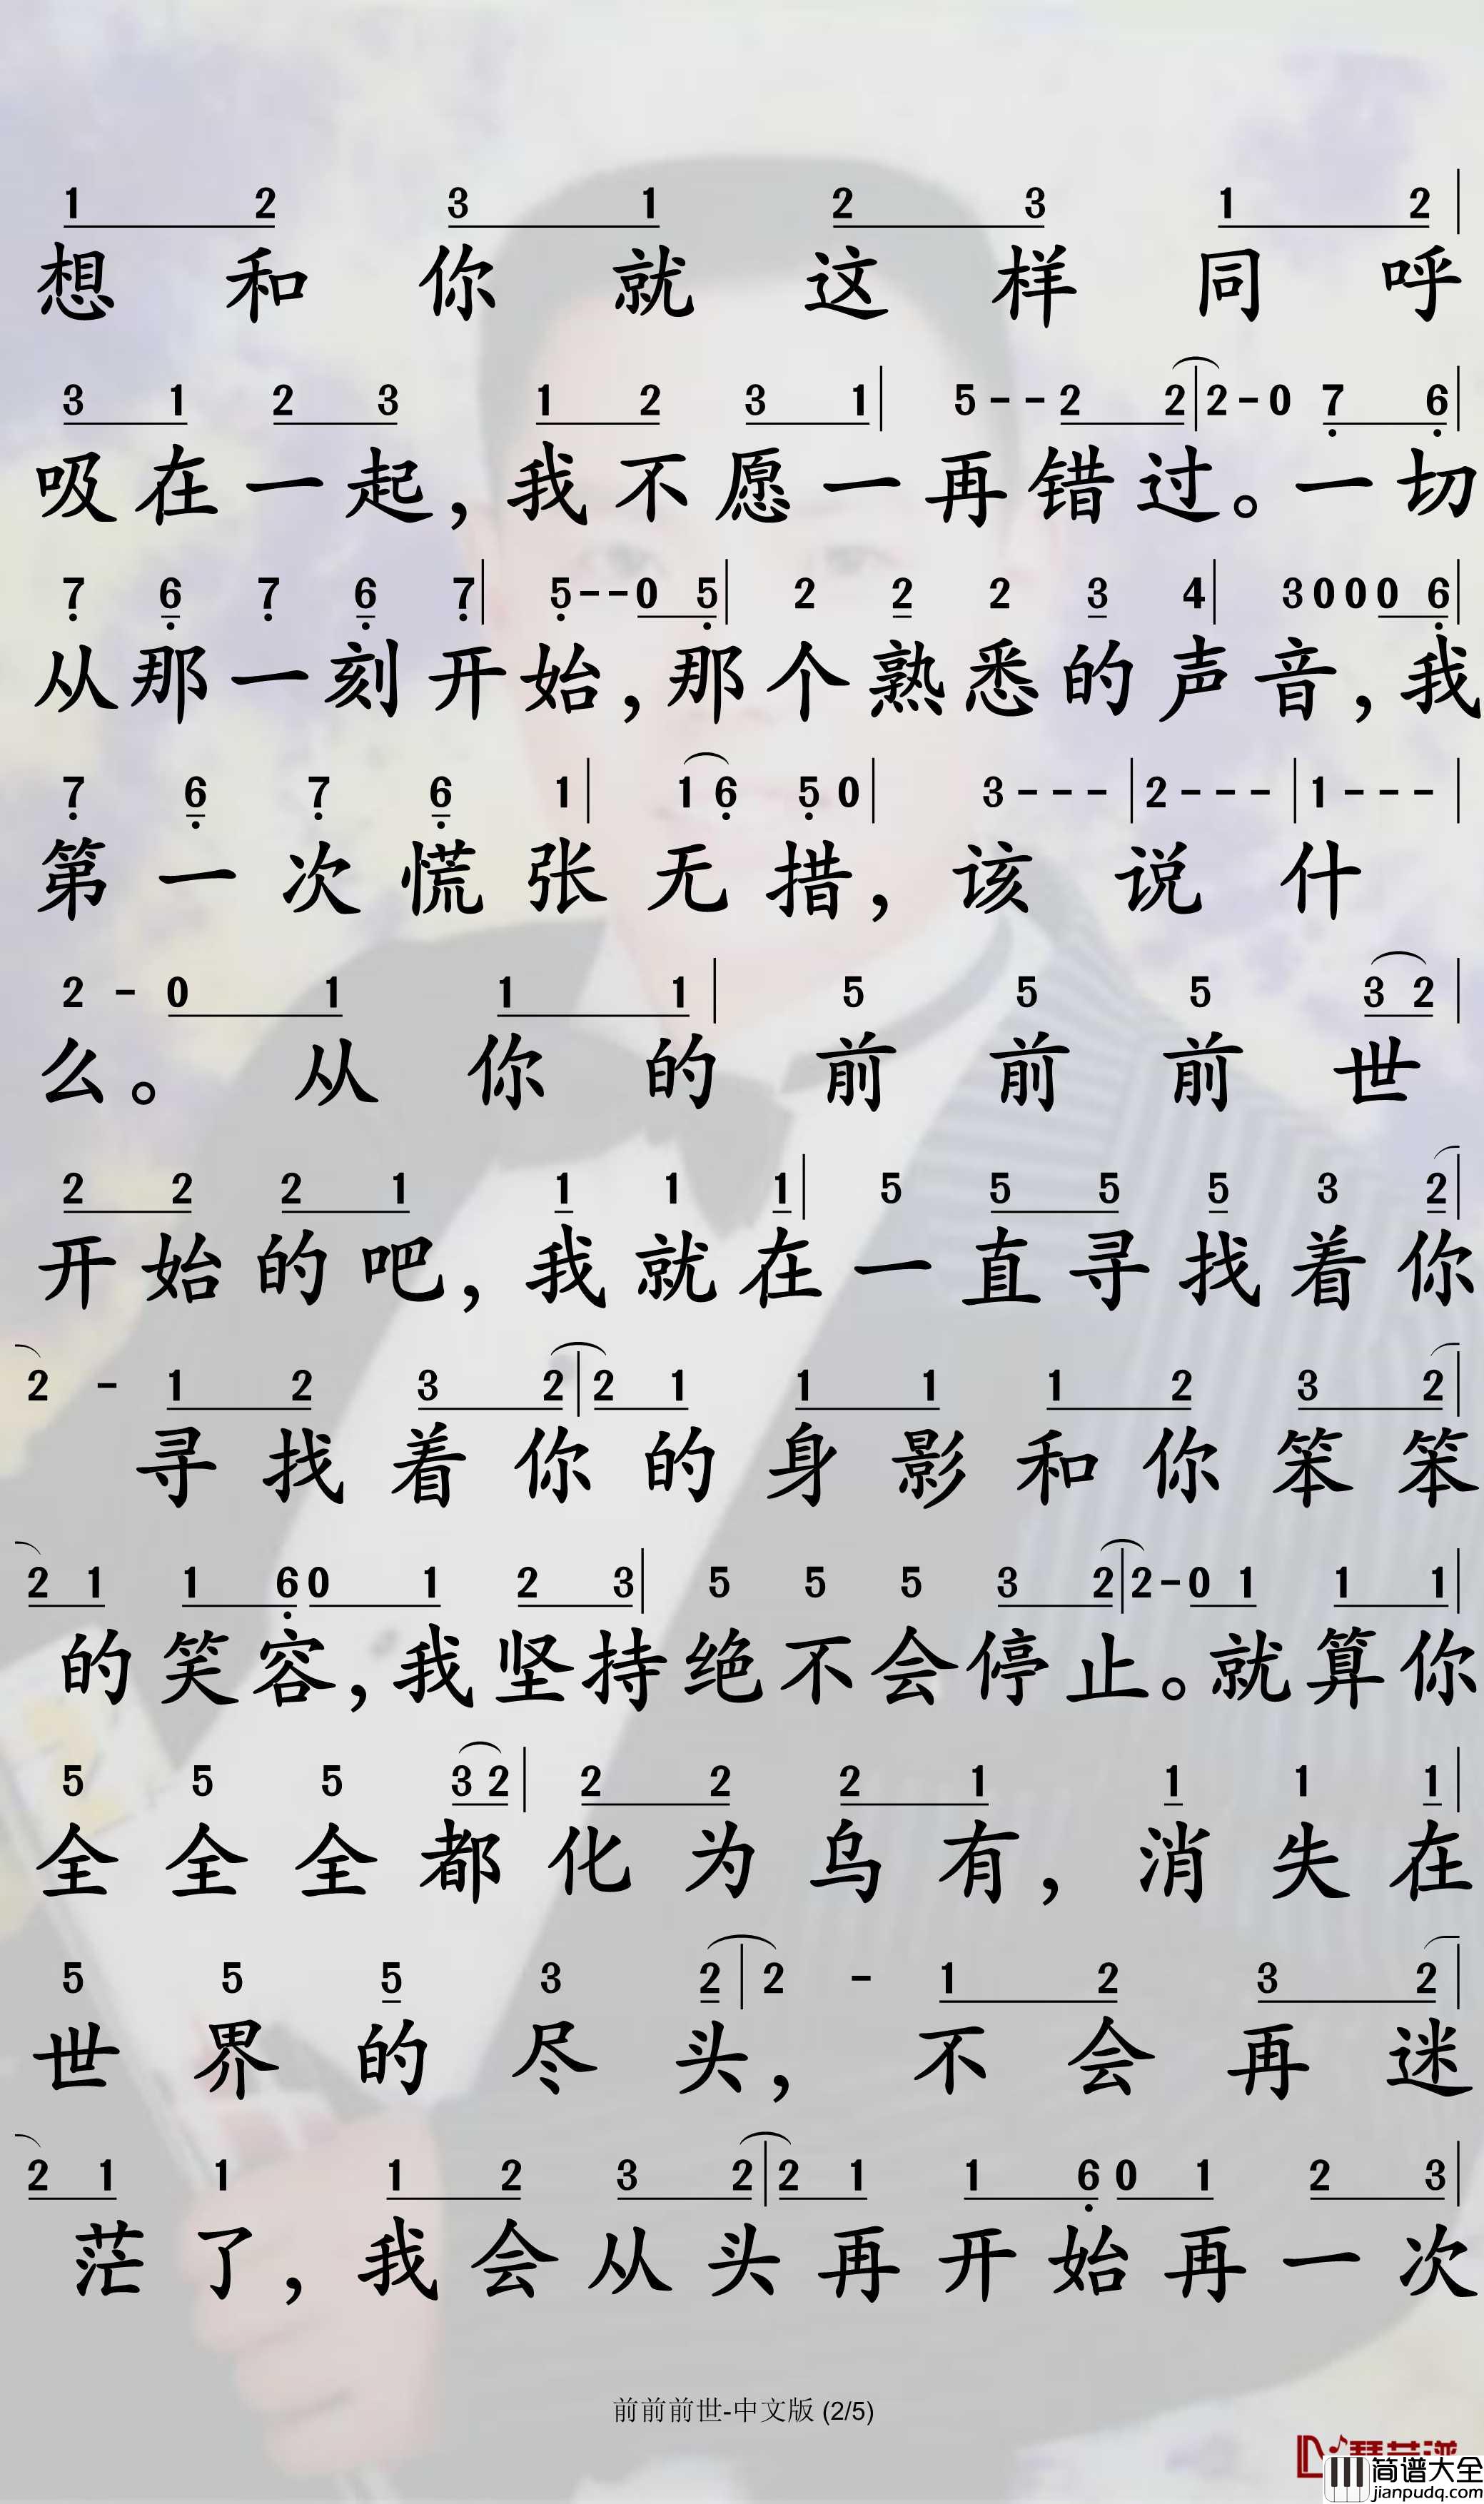 1 2 3 1 2 3 1 2
想和你就这样同呼
3 1 2 3 1 2 3 1 5 - - 2 2 2 - 0 7 6
吸在一起，我不愿一再错过。一切
7 6 7 6 7 5 - - 0 5 2 2 2 3 4 3 0 0 0 6
从那一刻开始，那个熟悉的声音，我
7 6 7 6 1 1 6 5 0 3 - - - 2 - - - 1 - - -
第一次慌张无措，该说什
2 - 0 1 1 1 5 5 5 3 2
么。从你的前前前世
2 2 2 1 1 1 1 5 5 5 5 3 2
开始的吧，我就在一直寻找着你
2 - 1 2 3 2 2 1 1 1 1 2 3 2
寻找着你的身影和你笨笨
2 1 1 6 0 1 2 3 5 5 5 3 2 2 - 0 1 1 1
的笑容，我坚持绝不会停止。就算你
5 5 5 3 2 2 2 2 1 1 1 1
全全全都化为乌有，消失在
5 5 5 3 2 2 - 1 2 3 2
世界的尽头，不会再迷
2 1 1 1 2 3 2 2 1 1 6 0 1 2 3
茫了，我会从头再开始再一次
前前前世-中文版 (2/5)
简谱大全
jianpudq.com